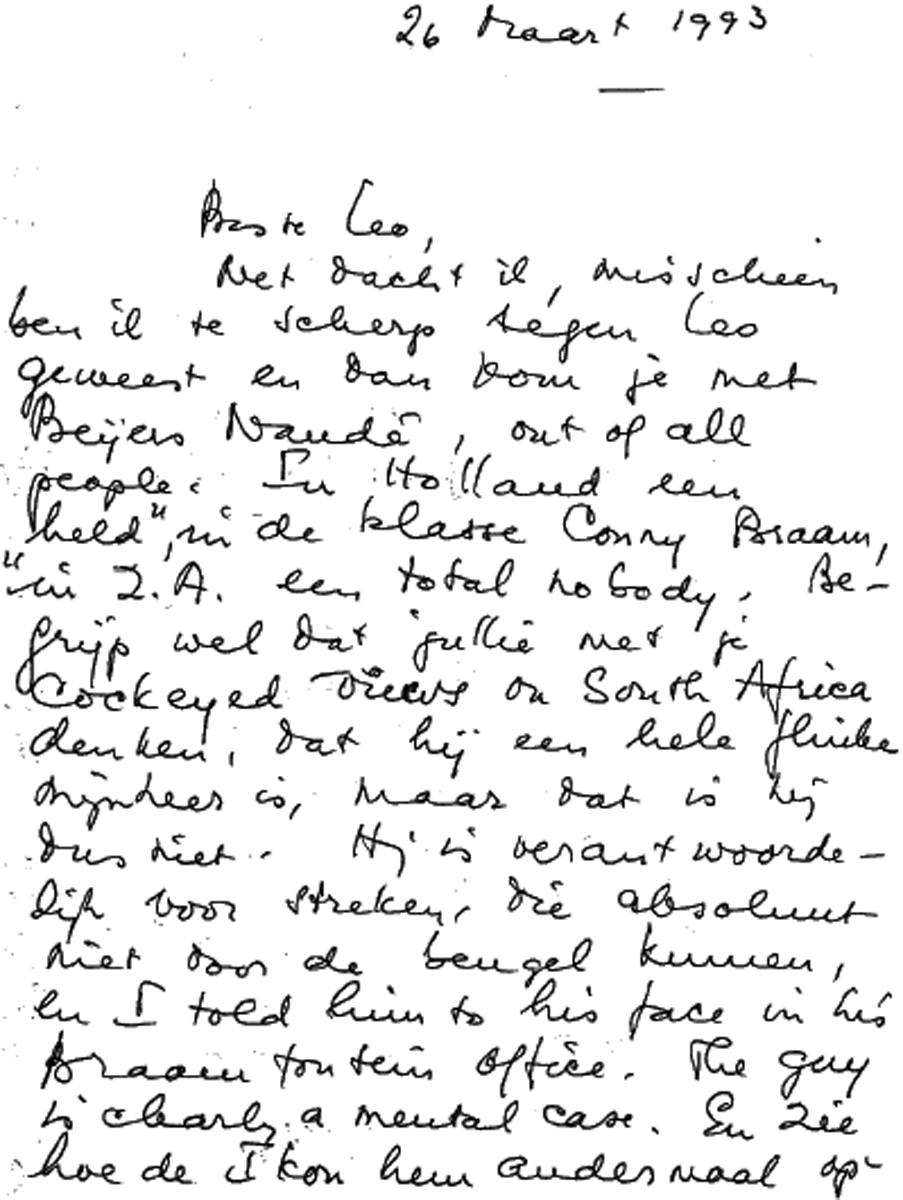 26 Maart 1993
Beste Leo,
Net dacht ik, misschien
ben ik te scherp tegen Leo
geweest en dan kom je met
Beijers Naudé, out of all
people. In Holland een
"held", in de klasse Conny Braam,
in Z.A. een total nobody. Be-
grijp wel dat jullie met je
Cockeyed views on South Africa
denken, dat hij een hele flinke
mijnheer is, maar dat is hij
dus niet. Hij is verantwoorde-
lijk voor streken, die absoluut
niet door de beugel kunnen,
en I told him to his face in his
Braamfontein office. The guy
is clearly a mental case. En zie
hoe de Ikon hem andermaal op-